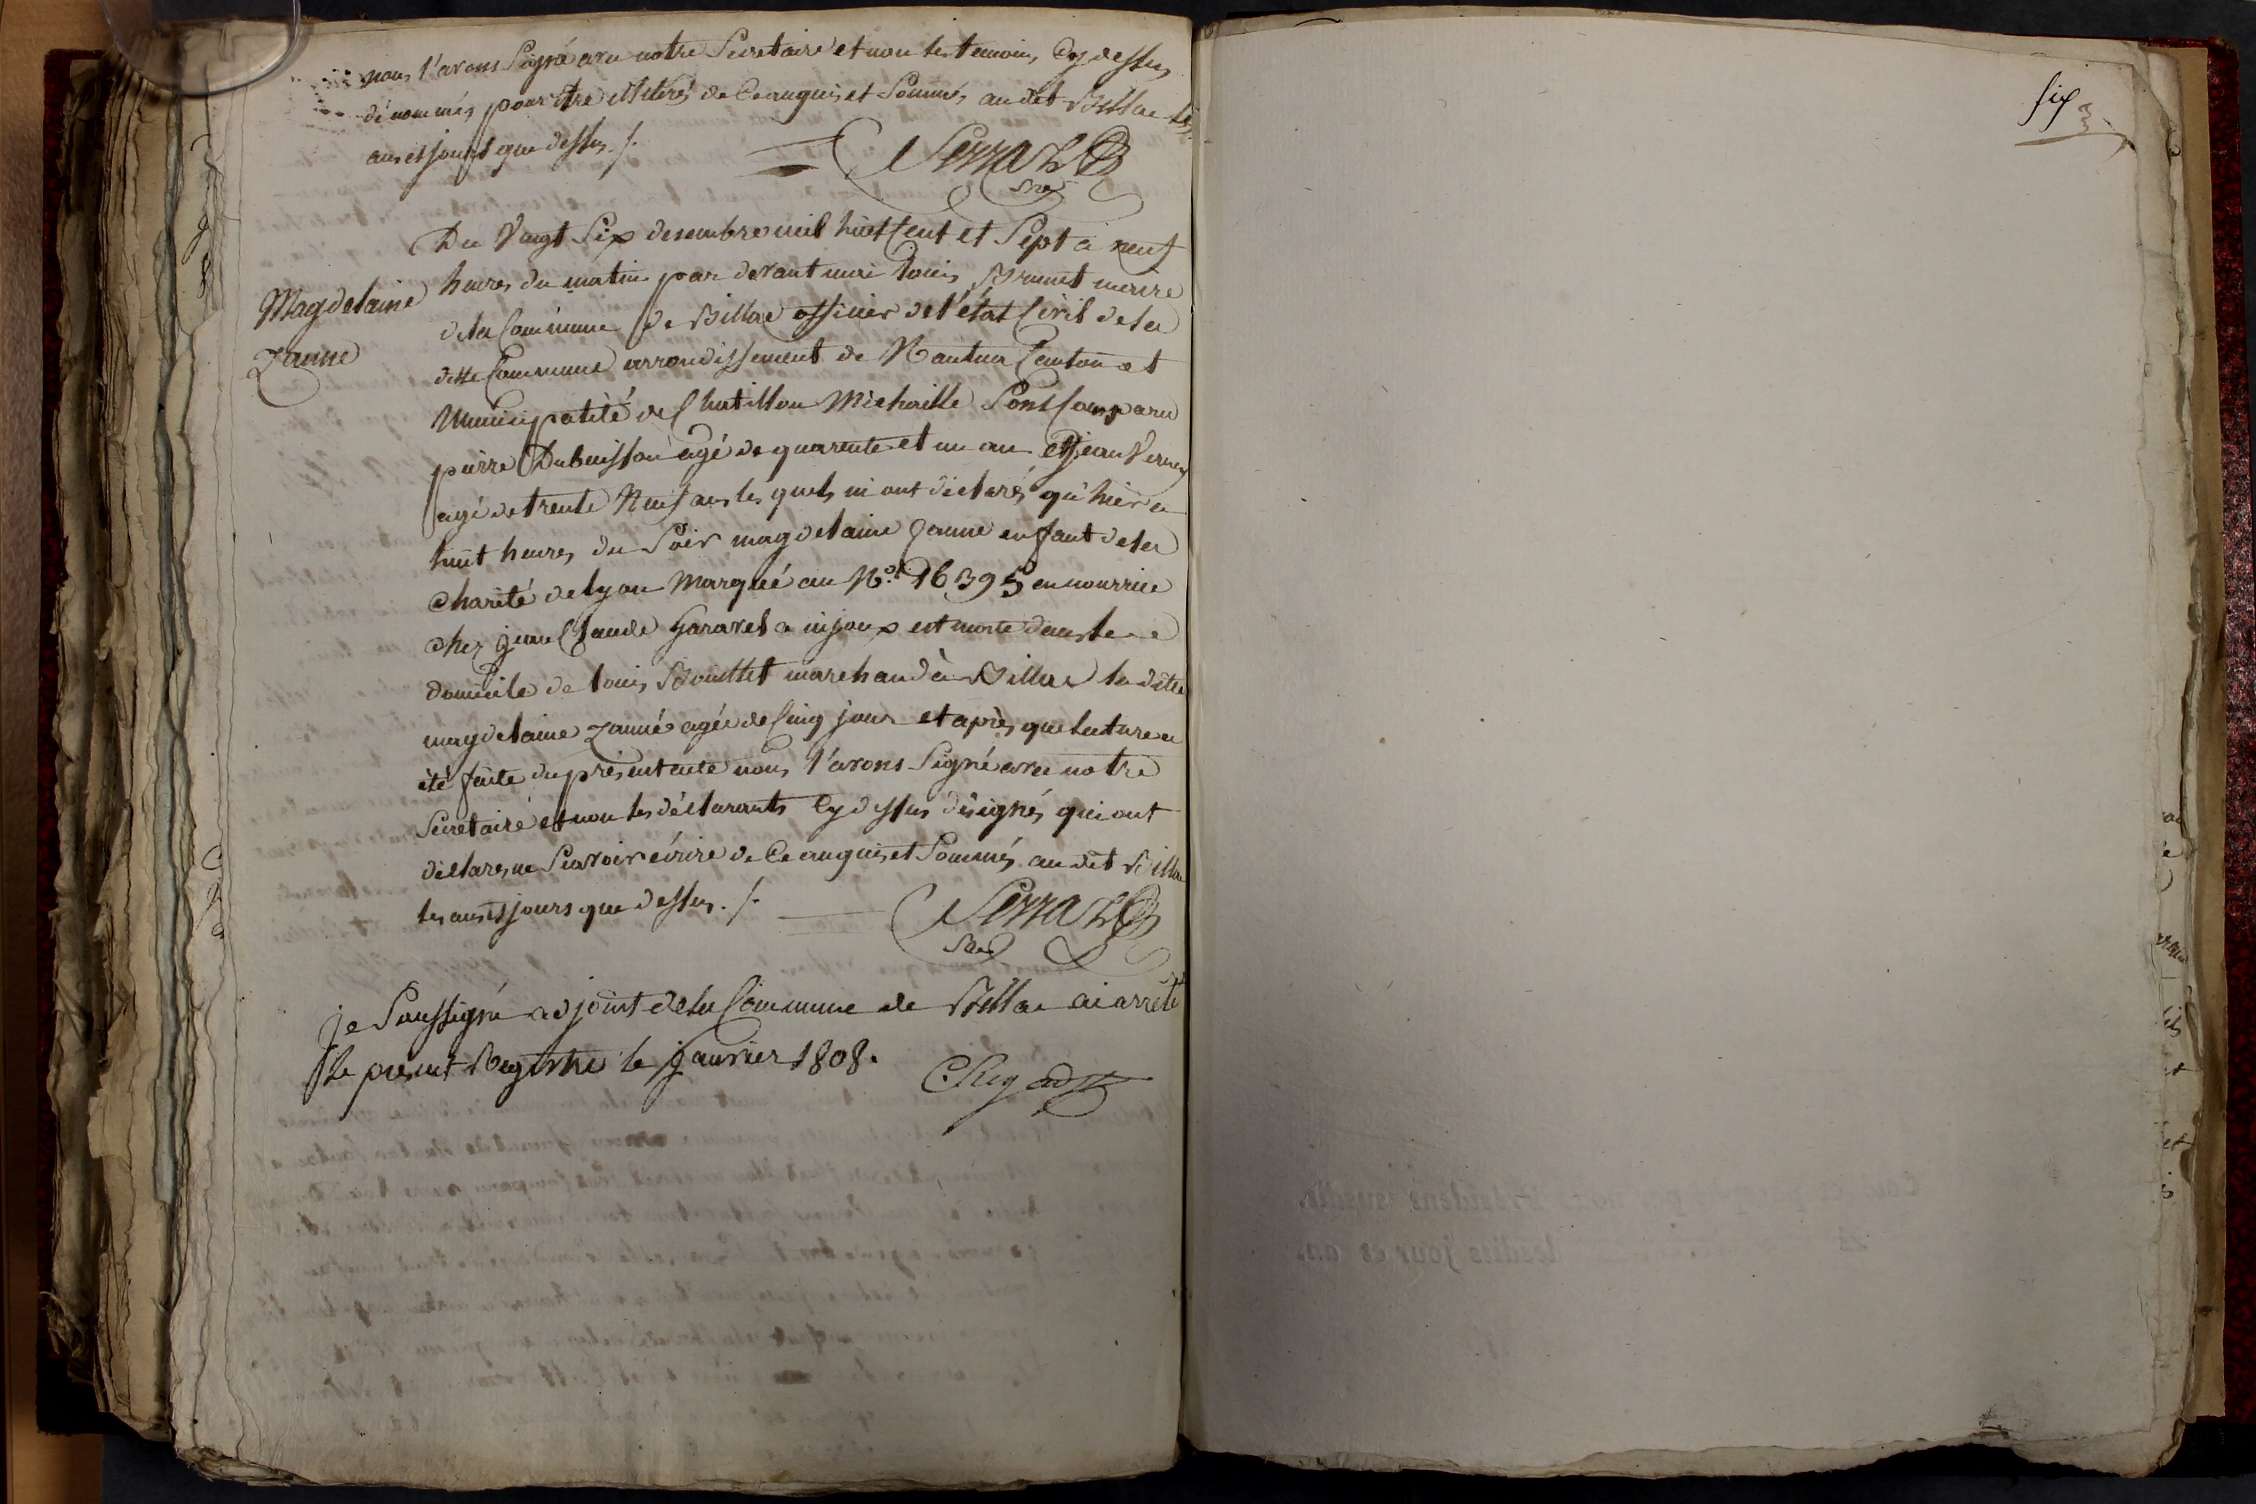 nous l'avons Signé avec notre Secretaire et non les temoins Cy dessus
dénommés pour être illiterés de Ce anquis et Sommés au dit Billac les
ans et jours que dessus ./.
Serra
Sre
Du Vingt Six desembre mil huit Cent et Sept à neuf
heures du matin par devant moi Louis Brunet maire
Magdelaine
de la Commune de Billac officier de l'état Civil de la
Zanne
ditte Commune arrondissement de Nantua Canton et
Municipalité de Chatillon Michaille Sont Comparu
pierre Dubuisson agé de quarente et un an et jean Verney
agé de trente Neuf ans les quels m'ont déclarés qu'hier a
huit heures du Soir magdelaine Zanne enfant de la
Charité de lyon Marqué au N.º 16395 en nourrice
Chez jean Claude Gararel a injoux est morte dans le
domicile de Louis Bouillet marchand à Billac la dite
magdelaine Zanne agée de Cinq jour et après que lecture a
été faite du présent acte nous l'avons Signé avec notre
Secretaire et non les déclarants Cy dessus désignés qui ont
déclarés ne Savoir écrire de Ce anquis et Sommés au dit Billac
les ans et jours que dessus ./.
Serra
Sre
Je Soussigné adjoint de la Commune de Billac ai arrêté
le present Registre le janvier 1808.
adj
six